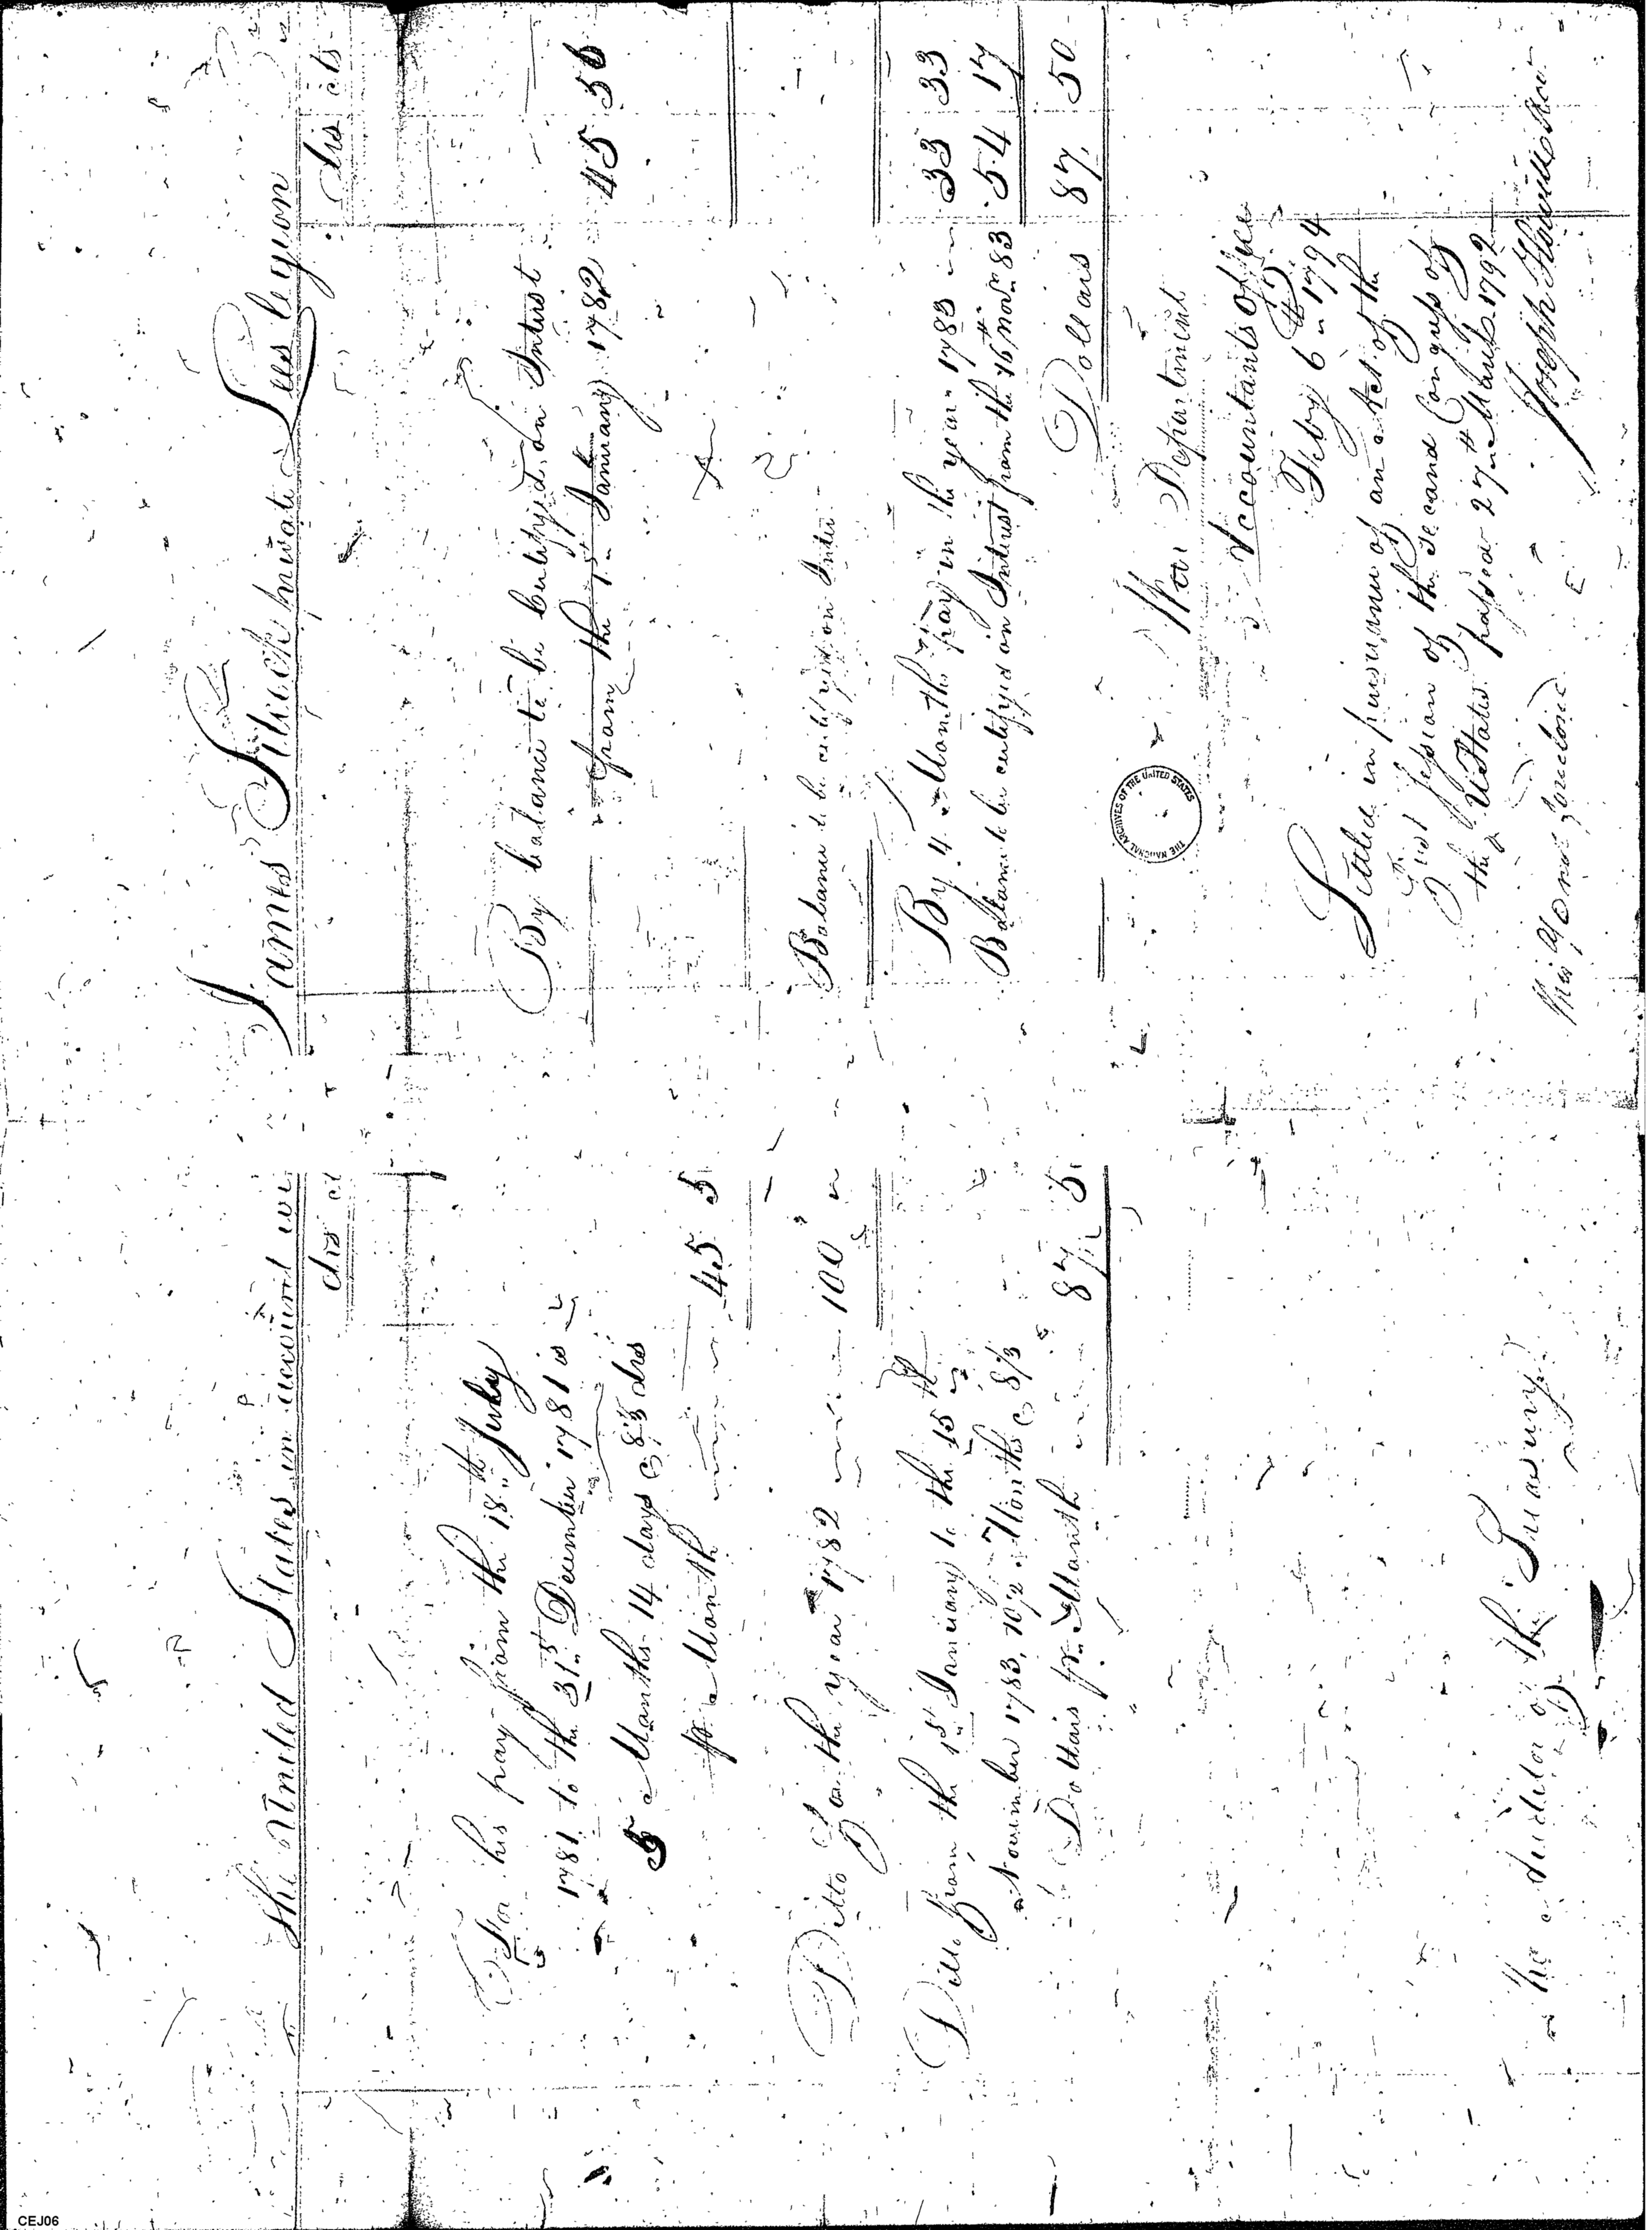 The United States in account
drs
For his pay from the 18th July
1781 to the 31st December 1781 is
5 Months 14 days @ 8⅓ drs
pr Month 45 5
Ditto for the year 1782 100
Ditto from the 1st January to the 15th
November 1783, 10½ Months @ 8⅓
Dollars pr. Month 87 5
The Auditor of the Treasury
James private Lees legion
drs cts
By balance to be certifyed on Interest
from the 1st January 1782 45 56
Balance to be certifyed on Inter
By 4 Months pay in the year 1783 33 33
Balance to be certifyed on Interest from the 16th Novr 83 54 17
Dollars 87. 50
War Department
Accountants office
Feby 6th 1794
Settled in pursuance of an Act of the
First Session of the Second Congress of
the U States passed 27th March 1792
Joseph Howell
THE NATIONAL ARCHIVES OF THE UNITED STATES
CEJ06